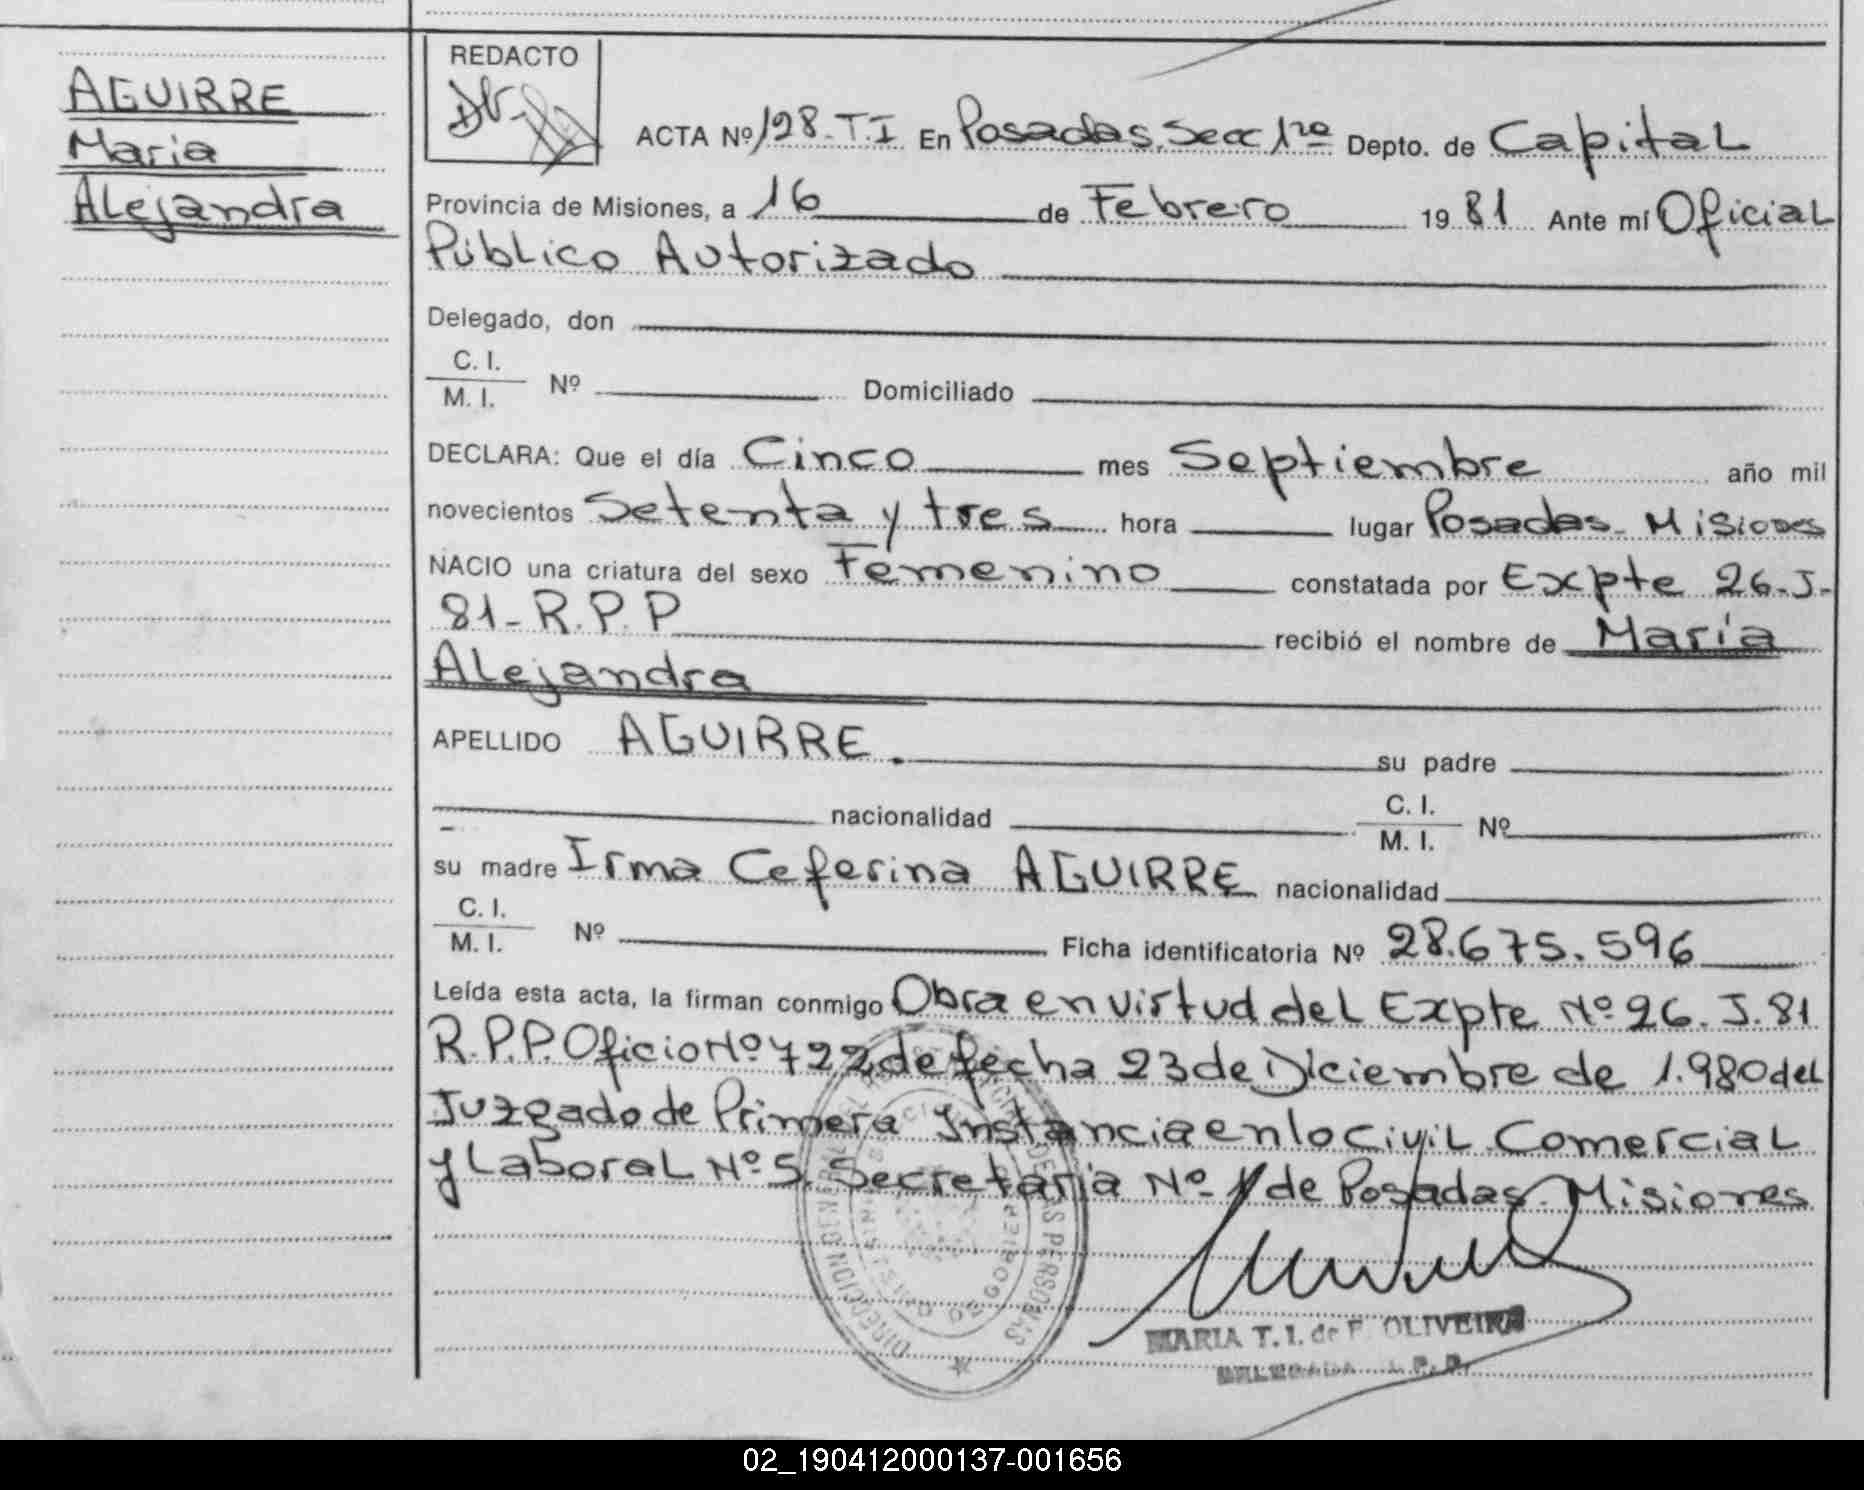 AGUIRRE
Maria
Alejandra
REDACTO
ACTA Nº 128-T.I En Posadas. Secc 1ra Depto. de Capital
Provincia de Misiones, a 16 de Febrero 1981 Ante mí Oficial
Público Autorizado
Delegado, don
C. I.
M. I. Nº Domiciliado
DECLARA: Que el día Cinco mes Septiembre año mil
novecientos Setenta y tres hora lugar Posadas - Misiones
NACIO una criatura del sexo Femenino constatada por Expte 26-J-
81-R.P.P recibió el nombre de María
Alejandra
APELLIDO AGUIRRE. su padre
nacionalidad C. I.
M. I. Nº
su madre Irma Ceferina AGUIRRE nacionalidad
C. I.
M. I. Nº Ficha identificatoria Nº 28.675.596
Leída esta acta, la firman conmigo Obra en virtud del Expte Nº 26. J. 81
R.P.P. Oficio Nº 722 de fecha 23 de Diciembre de 1.980 del
Juzgado de Primera Instancia en lo Civil Comercial
y Laboral Nº 5. Secretaria Nº 1 de Posadas - Misiones
DIRECCION GENERAL DEL REGISTRO DE LAS PERSONAS
MISIONES
DE GOBIERNO
MARIA T. I. de F. OLIVEIRA
DELEGADA R. P. P.
02_190412000137-001656